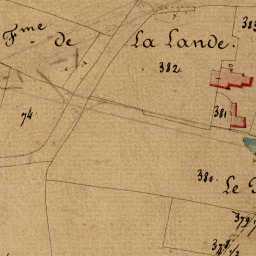 Fme de La Lande.
382
381
74
380
Le
379
378